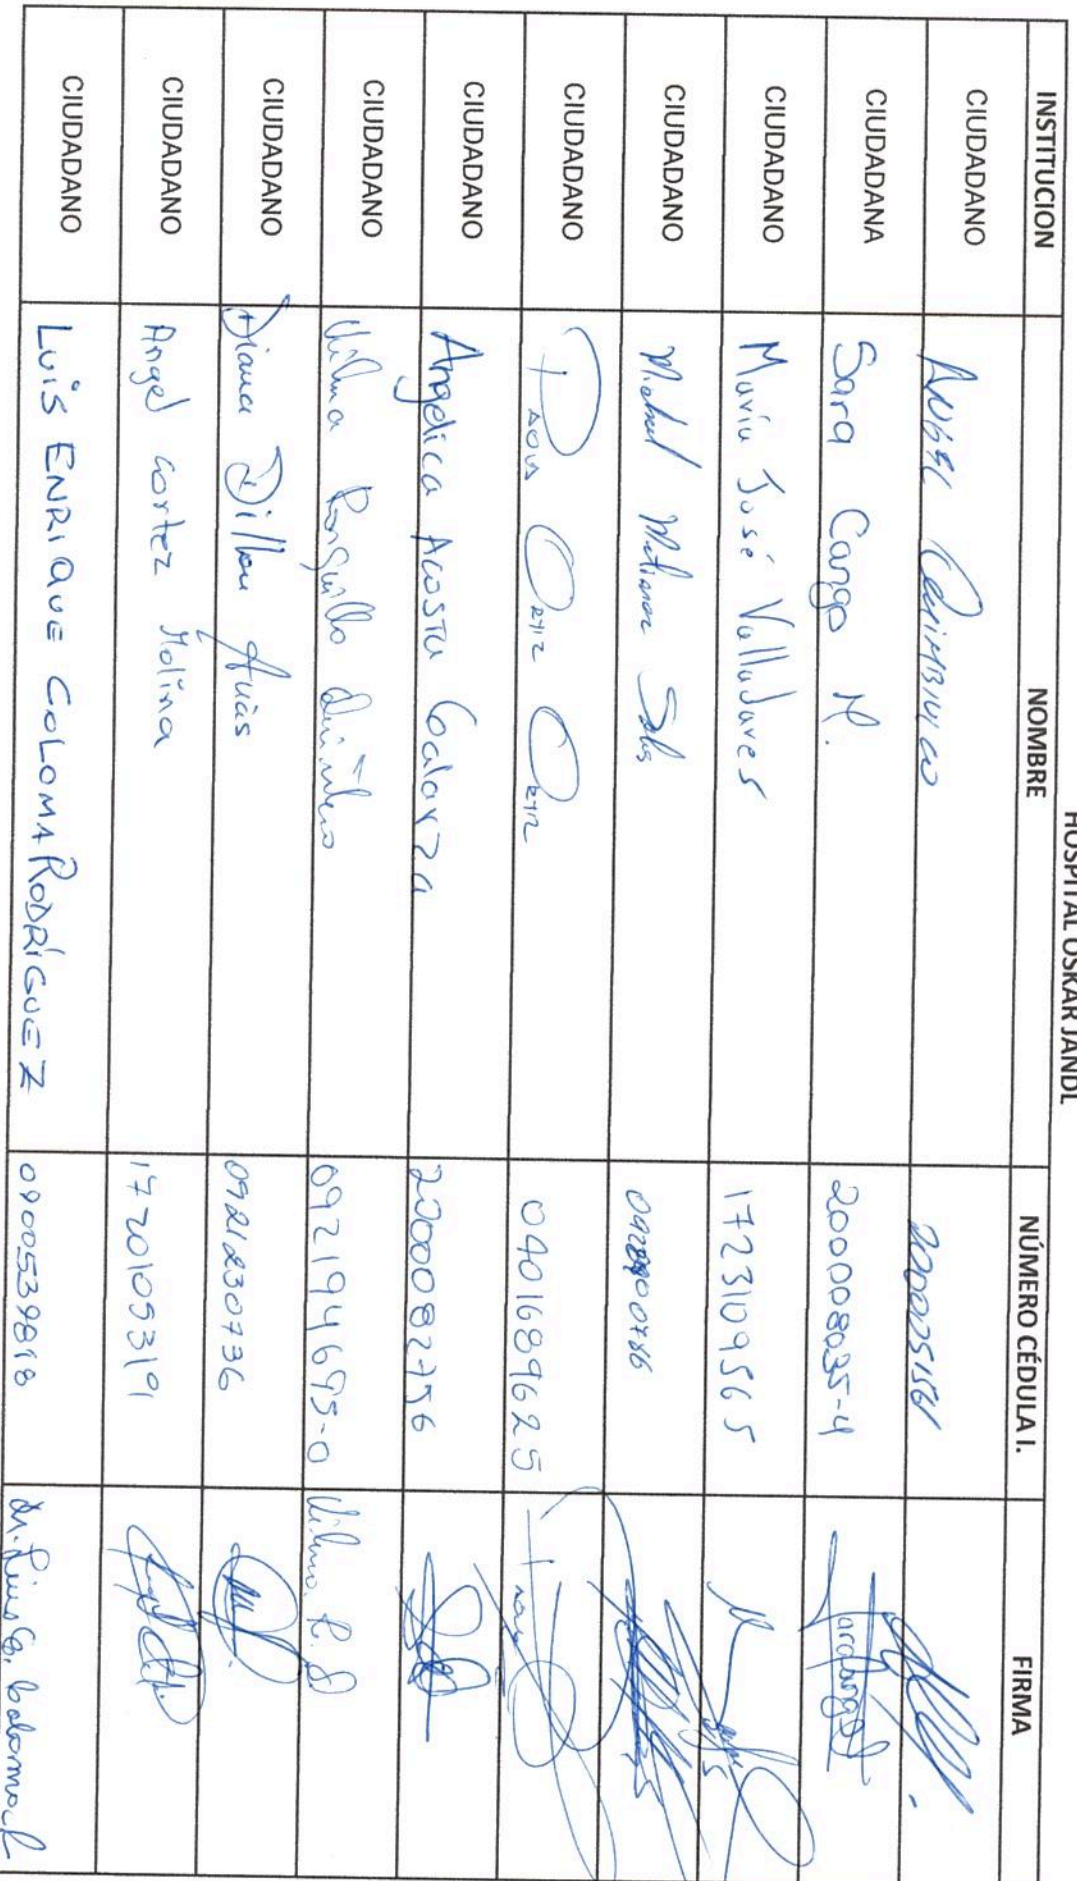 HOSPITAL OSKAR JANDL
INSTITUCION NOMBRE NÚMERO CÉDULA I. FIRMA
CIUDADANO
CIUDADANA Sara Cango M. 200008035-4 Sara Cango
CIUDADANO María José Valladares 1723109565
CIUDADANO
CIUDADANO Paola Ortiz Ortiz 0401689625
CIUDADANO Angelica Acosta Galarza 2000082756
CIUDADANO Vilma Ronquillo 092194695-0 Vilma R.
CIUDADANO Diana Dillon Arias 0921230736
CIUDADANO Angel Cortez Molina 1720105319
CIUDADANO LUIS ENRIQUE COLOMA RODRÍGUEZ 0900539818 Dr. Luis E. Coloma R